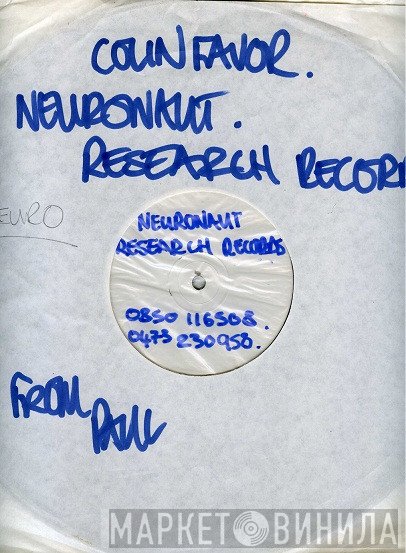 COLIN FAVOR.
NEURONAUT.
RESEARCH RECORD
EURO
NEURONAUT
RESEARCH RECORDS
0850 116508.
0473 230958.
FROM
PAUL
МАРКЕТ ВИНИЛА